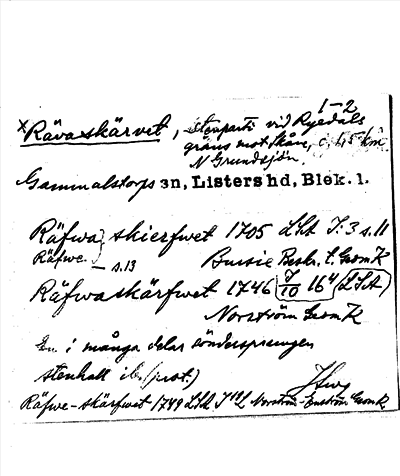 1-2
x Rävaskärvet, stenparti vid Ryedals
gräns mot Skåne, c. 1,5 km
N Grundsjön.
Gammalstorps sn, Listers hd, Blek. l.
Räfwa skierfwet 1705 LSA I:3 s. 11
Räfwe- — s. 13 Bussie Beskr. t. Geom K
Räfwaskärfwet 1746 7/10 16 4 (LSA)
Norström Geom K
En i många delar söndersprungen
stenhall ib. (prot.)
Räfwe-skärfwet 1749 LSA Norström Geom K